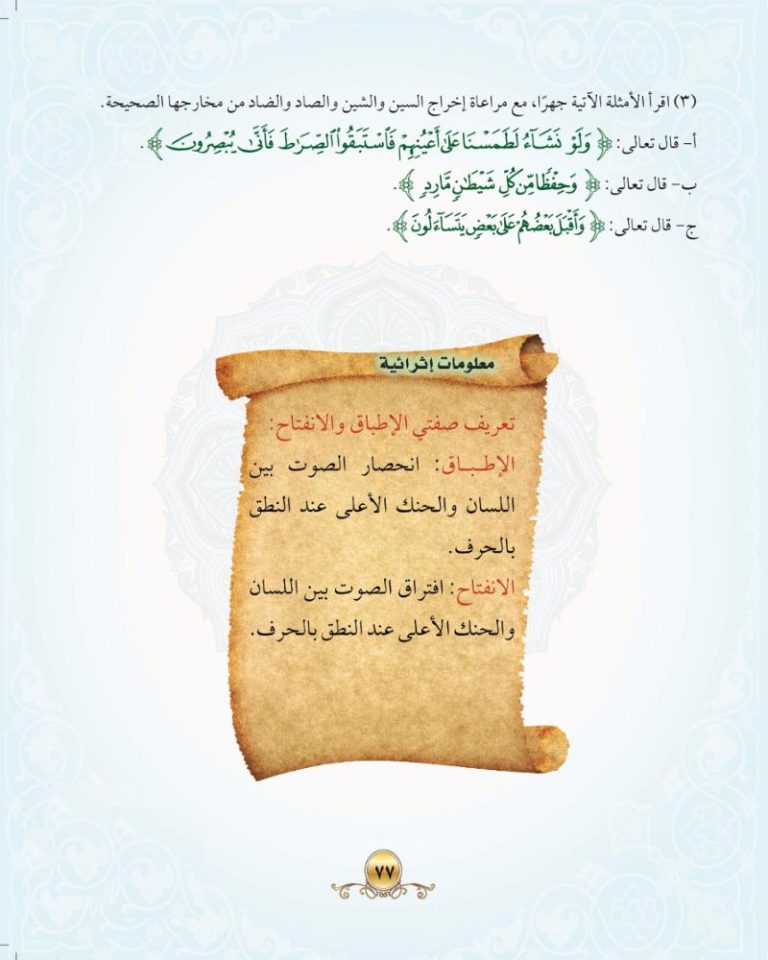 (٣) اقرأ الأمثلة الآتية جهرًا، مع مراعاة إخراج السين والشين والصاد والضاد من مخارجها الصحيحة.
أ- قال تعالى: ﴿ وَلَوْ نَشَآءُ لَطَمَسْنَا عَلَىٰٓ أَعْيُنِهِمْ فَٱسْتَبَقُوا۟ ٱلصِّرَٰطَ فَأَنَّىٰ يُبْصِرُونَ ﴾.
ب- قال تعالى: ﴿ وَحِفْظًا مِّن كُلِّ شَيْطَٰنٍ مَّارِدٍ ﴾.
ج- قال تعالى: ﴿ وَأَقْبَلَ بَعْضُهُمْ عَلَىٰ بَعْضٍ يَتَسَآءَلُونَ ﴾.
معلومات إثرائية
تعريف صفتي الإطباق والانفتاح:
الإطـبـاق: انحصار الصوت بين
اللسان والحنك الأعلى عند النطق
بالحرف.
الانفتاح: افتراق الصوت بين اللسان
والحنك الأعلى عند النطق بالحرف.
٧٧